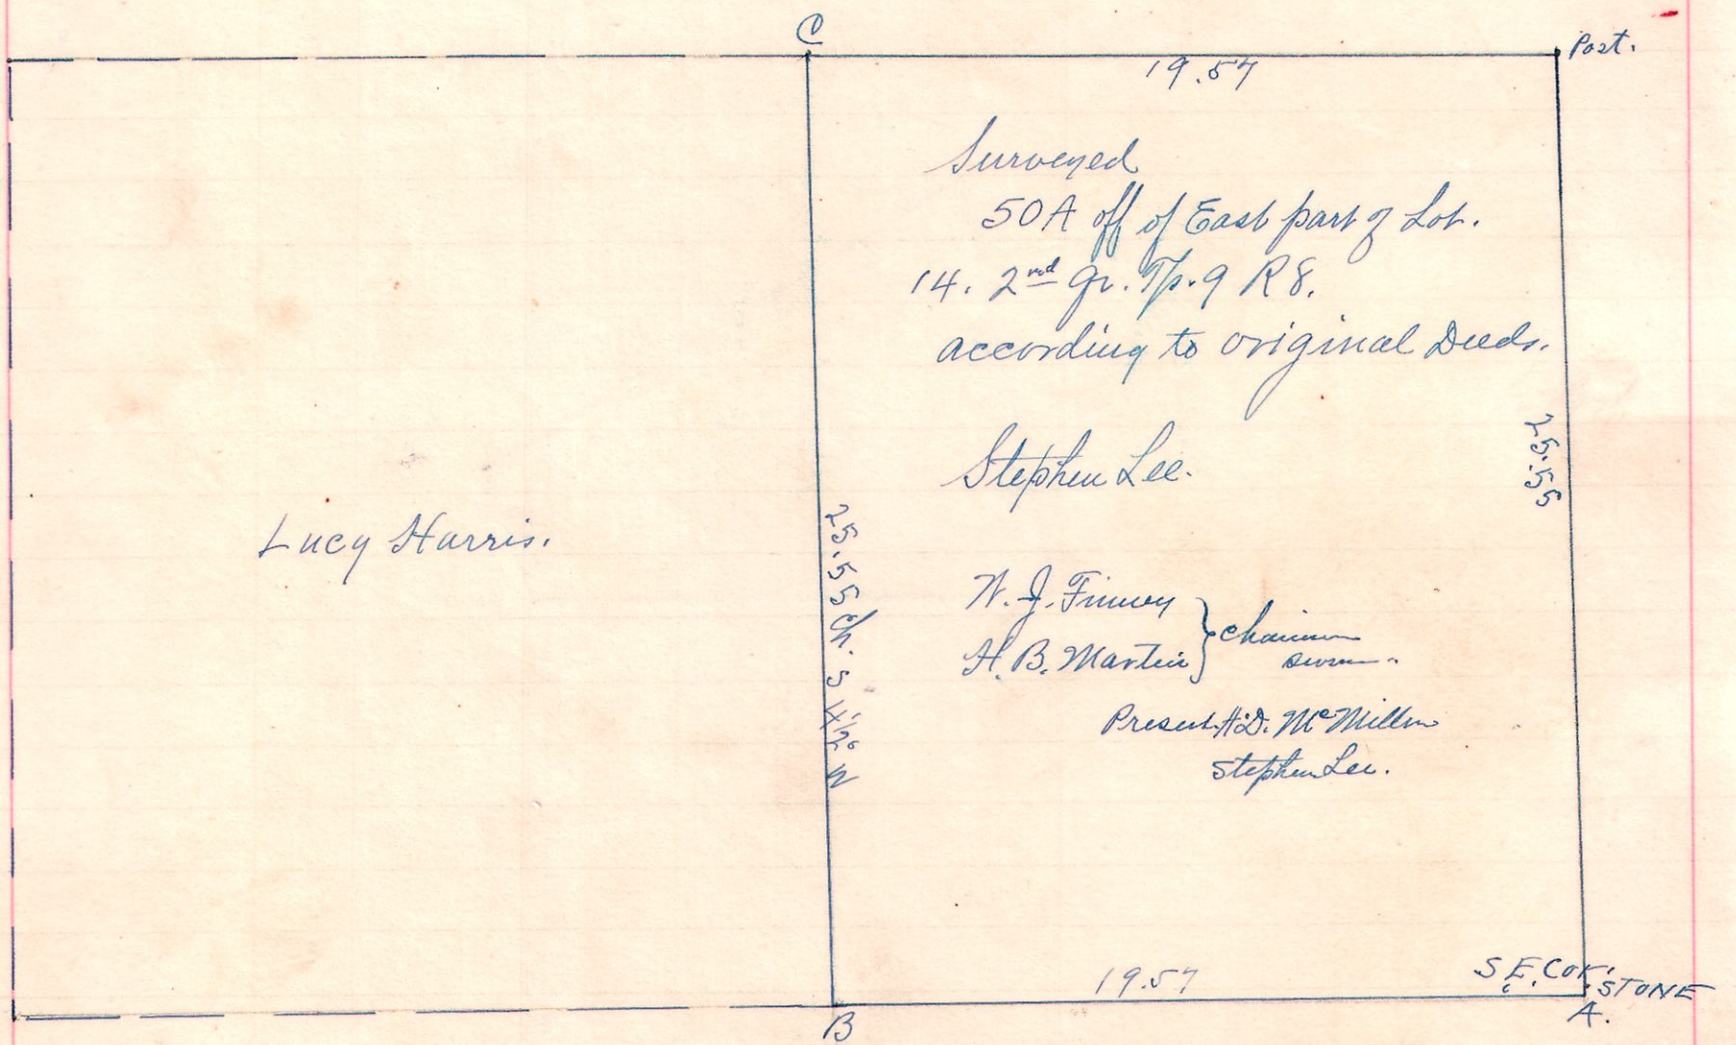 C
Post.
19.57
Surveyed
50A off of East part of Lot.
14. 2nd Qr. Tp. 9 R 8.
according to original Deeds.
25.55
Stephen Lee.
Lucy Harris.
25.55 Ch. S 4½° W
W. J. Finney
H. B. Martin } Chainmen
sworn.
Present H.D. McMillen
Stephen Lee.
19.57
S.E. Cor.
STONE
B
A.